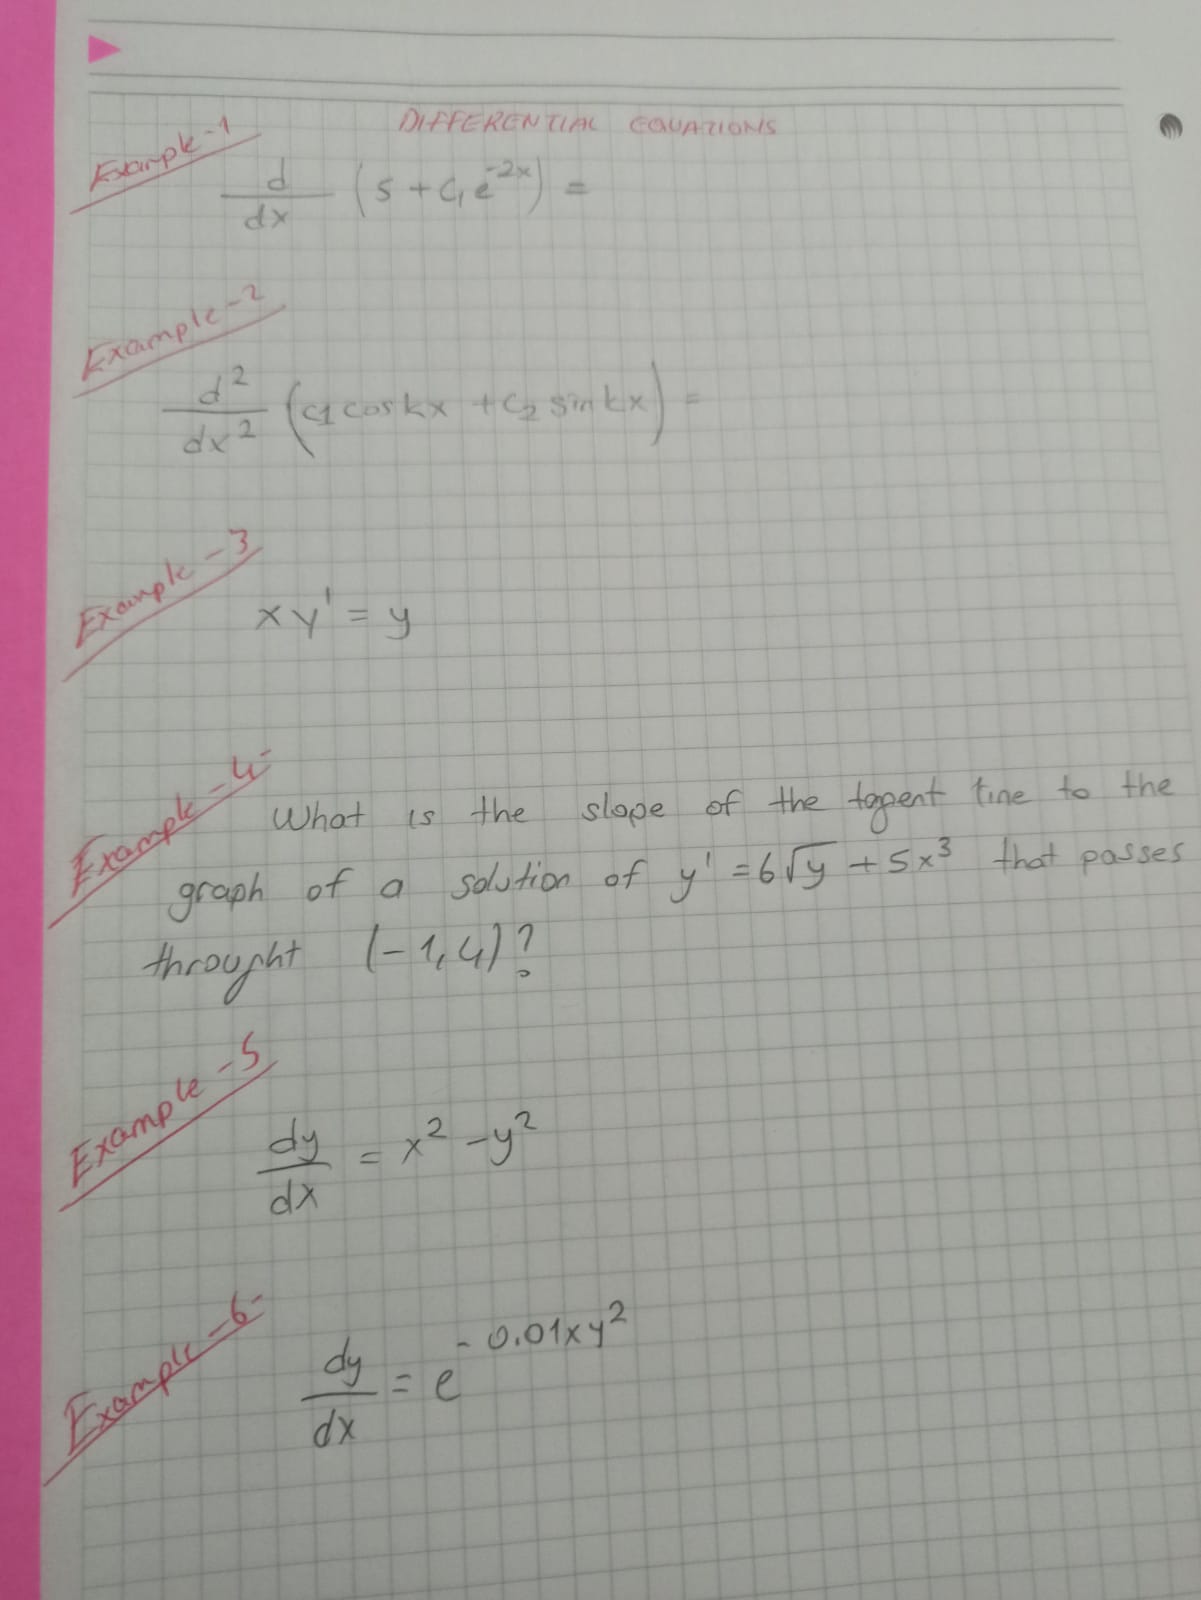 DIFFERENTIAL EQUATIONS
Example-1
d/dx (5 + c₁e^-2x) =
Example-2
d²/dx² (c1 cos kx + c2 sin kx) =
Example-3
xy' = y
Example-4-
What is the slope of the tagent line to the
graph of a solution of y' = 6√y + 5x³ that passes
throught (-1,4)?
Example-5
dy/dx = x² - y²
Example-6-
dy/dx = e^-0.01xy²